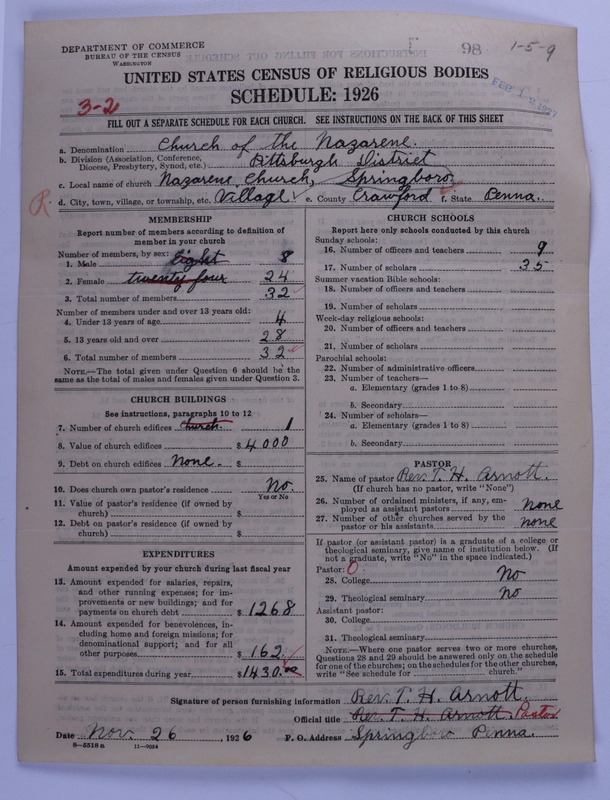 DEPARTMENT OF COMMERCE
BUREAU OF THE CENSUS
WASHINGTON
98 1-5-9
UNITED STATES CENSUS OF RELIGIOUS BODIES
SCHEDULE: 1926
3-2
FILL OUT A SEPARATE SCHEDULE FOR EACH CHURCH. SEE INSTRUCTIONS ON THE BACK OF THIS SHEET
a. Denomination Church of the Nazarene.
b. Division (Association, Conference, Diocese, Presbytery, Synod, etc.) Pittsburgh District
c. Local name of church Nazarene Church, Springboro
d. City, town, village, or township, etc. Village e. County Crawford f. State Penna.
R.
MEMBERSHIP
Report number of members according to definition of
member in your church
Number of members, by sex:
1. Male eight 8
2. Female twenty four 24
3. Total number of members 32
Number of members under and over 13 years old:
4. Under 13 years of age 4
5. 13 years old and over 28
6. Total number of members 32
NOTE.—The total given under Question 6 should be the
same as the total of males and females given under Question 3.
CHURCH BUILDINGS
See instructions, paragraphs 10 to 12
7. Number of church edifices Church. 1
8. Value of church edifices $4000
9. Debt on church edifices None. $
10. Does church own pastor's residence No.
Yes or No
11. Value of pastor's residence (if owned by
church) $
12. Debt on pastor's residence (if owned by
church) $
EXPENDITURES
Amount expended by your church during last fiscal year
13. Amount expended for salaries, repairs,
and other running expenses; for im-
provements or new buildings; and for
payments on church debt $1268
14. Amount expended for benevolences, in-
cluding home and foreign missions; for
denominational support; and for all
other purposes $162.
15. Total expenditures during year $1430.
CHURCH SCHOOLS
Report here only schools conducted by this church
Sunday schools:
16. Number of officers and teachers 9
17. Number of scholars 35
Summer vacation Bible schools:
18. Number of officers and teachers
19. Number of scholars
Week-day religious schools:
20. Number of officers and teachers
21. Number of scholars
Parochial schools:
22. Number of administrative officers
23. Number of teachers—
a. Elementary (grades 1 to 8)
b. Secondary
24. Number of scholars—
a. Elementary (grades 1 to 8)
b. Secondary
PASTOR
25. Name of pastor Rev. T. H. Arnott.
(If church has no pastor, write "None")
26. Number of ordained ministers, if any, em-
ployed as assistant pastors None
27. Number of other churches served by the
pastor or his assistants none
If pastor (or assistant pastor) is a graduate of a college or
theological seminary, give name of institution below. (If
not a graduate, write "No" in the space indicated.)
Pastor: O
28. College No
29. Theological seminary No
Assistant pastor:
30. College
31. Theological seminary
NOTE.—Where one pastor serves two or more churches,
Questions 28 and 29 should be answered only on the schedule
for one of the churches; on the schedules for the other churches,
write "See schedule for church."
Signature of person furnishing information Rev. T. H. Arnott.
Official title Rev. T. H. Arnott. Pastor
Date Nov. 26, 1926 P. O. Address Springboro Penna.
8—5518 a 11—9034